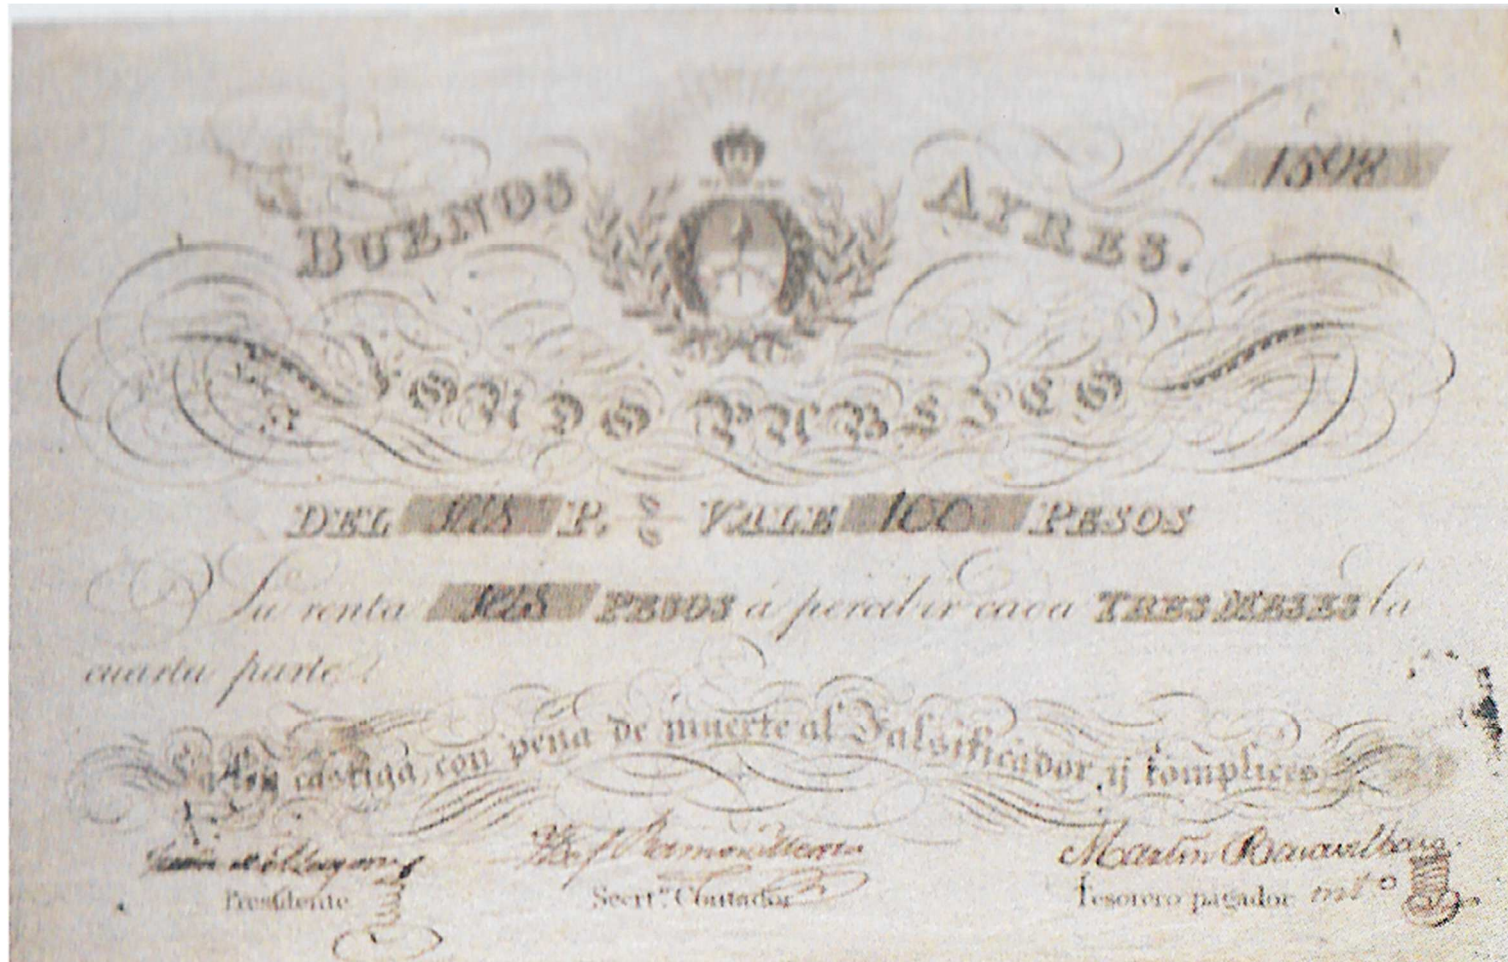 1598
BUENOS AYRES.
FONDO PUBLICO
DEL SEIS P. % VALE 100 PESOS
Su renta SEIS PESOS á percibir cada TRES MESES la
cuarta parte.
La Ley castiga con pena de muerte al Falsificador y complices
Martin
Presidente Secrt.º Contador Tesorero pagador int.º